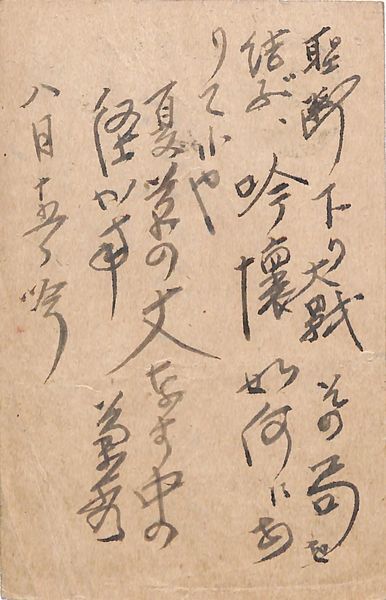 聖断下り大戦その局を
結ぶ、吟懐如何にあ
りてにや
夏草の丈なす中の
径か事
八月十五日 吟